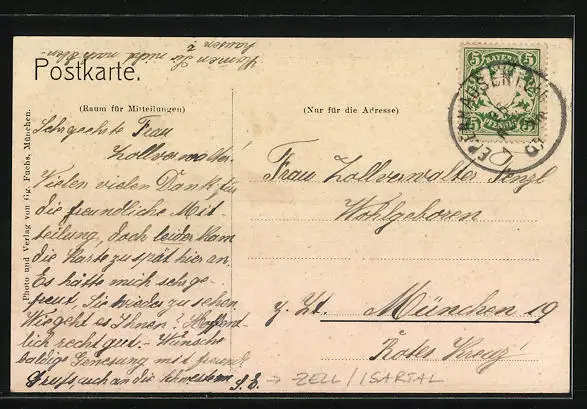 Kommen Sie nicht nach Eben-
hausen?
Postkarte.
(Raum für Mitteilungen)
(Nur für die Adresse)
BAYERN
5 5
PFENNIG
EBENHAUSEN
Sehrgeehrte Frau
Zollverwalter!
Vielen vielen Dank für
die freundliche Mit-
teilung, doch leider kam
die Karte zu spät hier an.
Es hätte mich sehr ge-
freut, Sie wieder zu sehen
Wie geht es Ihnen? Hoffent-
lich recht gut. - Wünsche
baldige Genesung mit freundl.
Gruß auch an die Schwestern
S. B.
Frau Zollverwalter Stenzl
Wohlgeboren
z. Zt. München 19
Rotes Kreuz
→ ZELL / ISARTAL
Photo und Verlag von Gg. Fuchs, München.